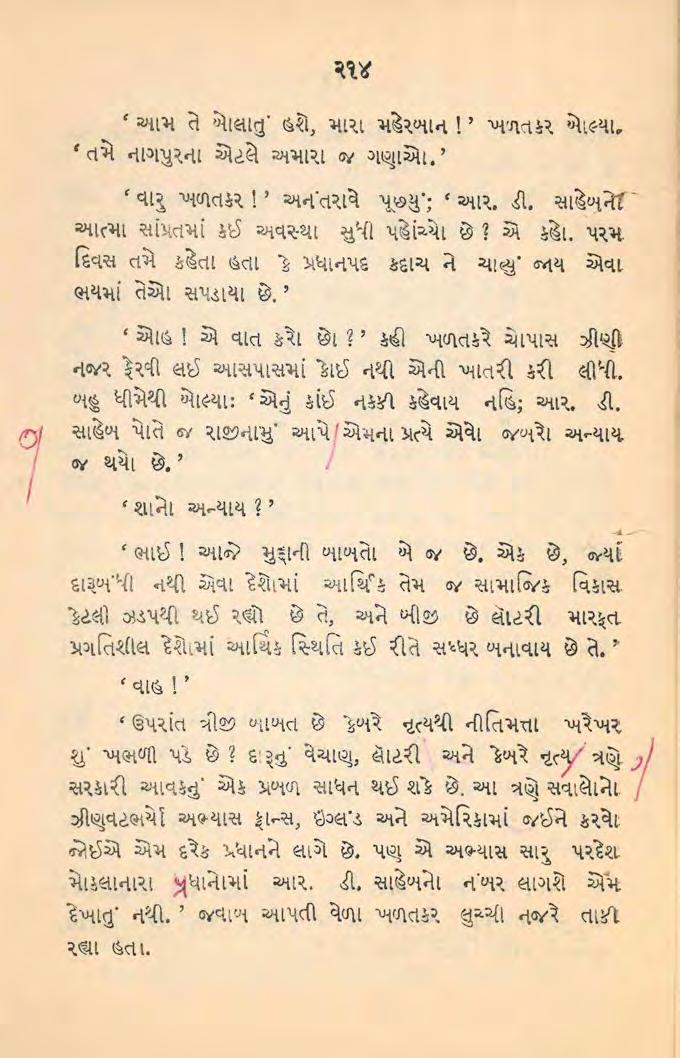 ૨૧૪
‘ આમ તે બોલાતું હશે, મારા મહેરબાન ! ’ ખળતકર બોલ્યા.
‘ તમે નાગપુરના એટલે અમારા જ ગણાઓ. ’
‘ વારુ ખળતકર ! ’ અનંતરાવે પૂછ્યું; ‘ આર. ડી. સાહેબનો
આત્મા સાંપ્રતમાં કઈ અવસ્થા સુધી પહોંચ્યો છે ? એ કહો. પરમ
દિવસ તમે કહેતા હતા કે પ્રધાનપદ કદાચ ને ચાલ્યું જાય એવા
ભયમાં તેઓ સપડાયા છે. ’
‘ ઓહ ! એ વાત કરો છો ? ’ કહી ખળતકરે ચોપાસ ઝીણી
નજર ફેરવી લઈ આસપાસમાં કોઈ નથી એની ખાતરી કરી લીધી.
બહુ ધીમેથી બોલ્યાઃ ‘ એનું કાંઈ નકકી કહેવાય નહિ; આર. ડી.
સાહેબ પોતે જ રાજીનામું આપે એમના પ્રત્યે એવો જબરો અન્યાય
જ થયો છે. ’
‘ શાનો અન્યાય ? ’
‘ ભાઈ ! આજે મુદ્દાની બાબતો બે જ છે. એક છે, જ્યાં
દારૂબંધી નથી એવા દેશોમાં આર્થિક તેમ જ સામાજિક વિકાસ
કેટલી ઝડપથી થઈ રહ્યો છે તે, અને બીજી છે લૉટરી મારફત
પ્રગતિશીલ દેશોમાં આર્થિક સ્થિતિ કઈ રીતે સધ્ધર બનાવાય છે તે. ’
‘ વાહ ! ’
‘ ઉપરાંત ત્રીજી બાબત છે કેબરે નૃત્યથી નીતિમત્તા ખરેખર
શું ખભળી પડે છે ? દારૂનું વેચાણ, લૉટરી અને કેબરે નૃત્ય ત્રણે
સરકારી આવકનું એક પ્રબળ સાધન થઈ શકે છે. આ ત્રણે સવાલોનો
ઝીણવટભર્યો અભ્યાસ ફ્રાન્સ, ઇંગ્લંડ અને અમેરિકામાં જઈને કરવો
જોઈએ એમ દરેક પ્રધાનને લાગે છે. પણ એ અભ્યાસ સારુ પરદેશ
મોકલાનારા પ્રધાનોમાં આર. ડી. સાહેબનો નંબર લાગશે એમ
દેખાતું નથી. ’ જવાબ આપતી વેળા ખળતકર લુચ્ચી નજરે તાકી
રહ્યા હતા.